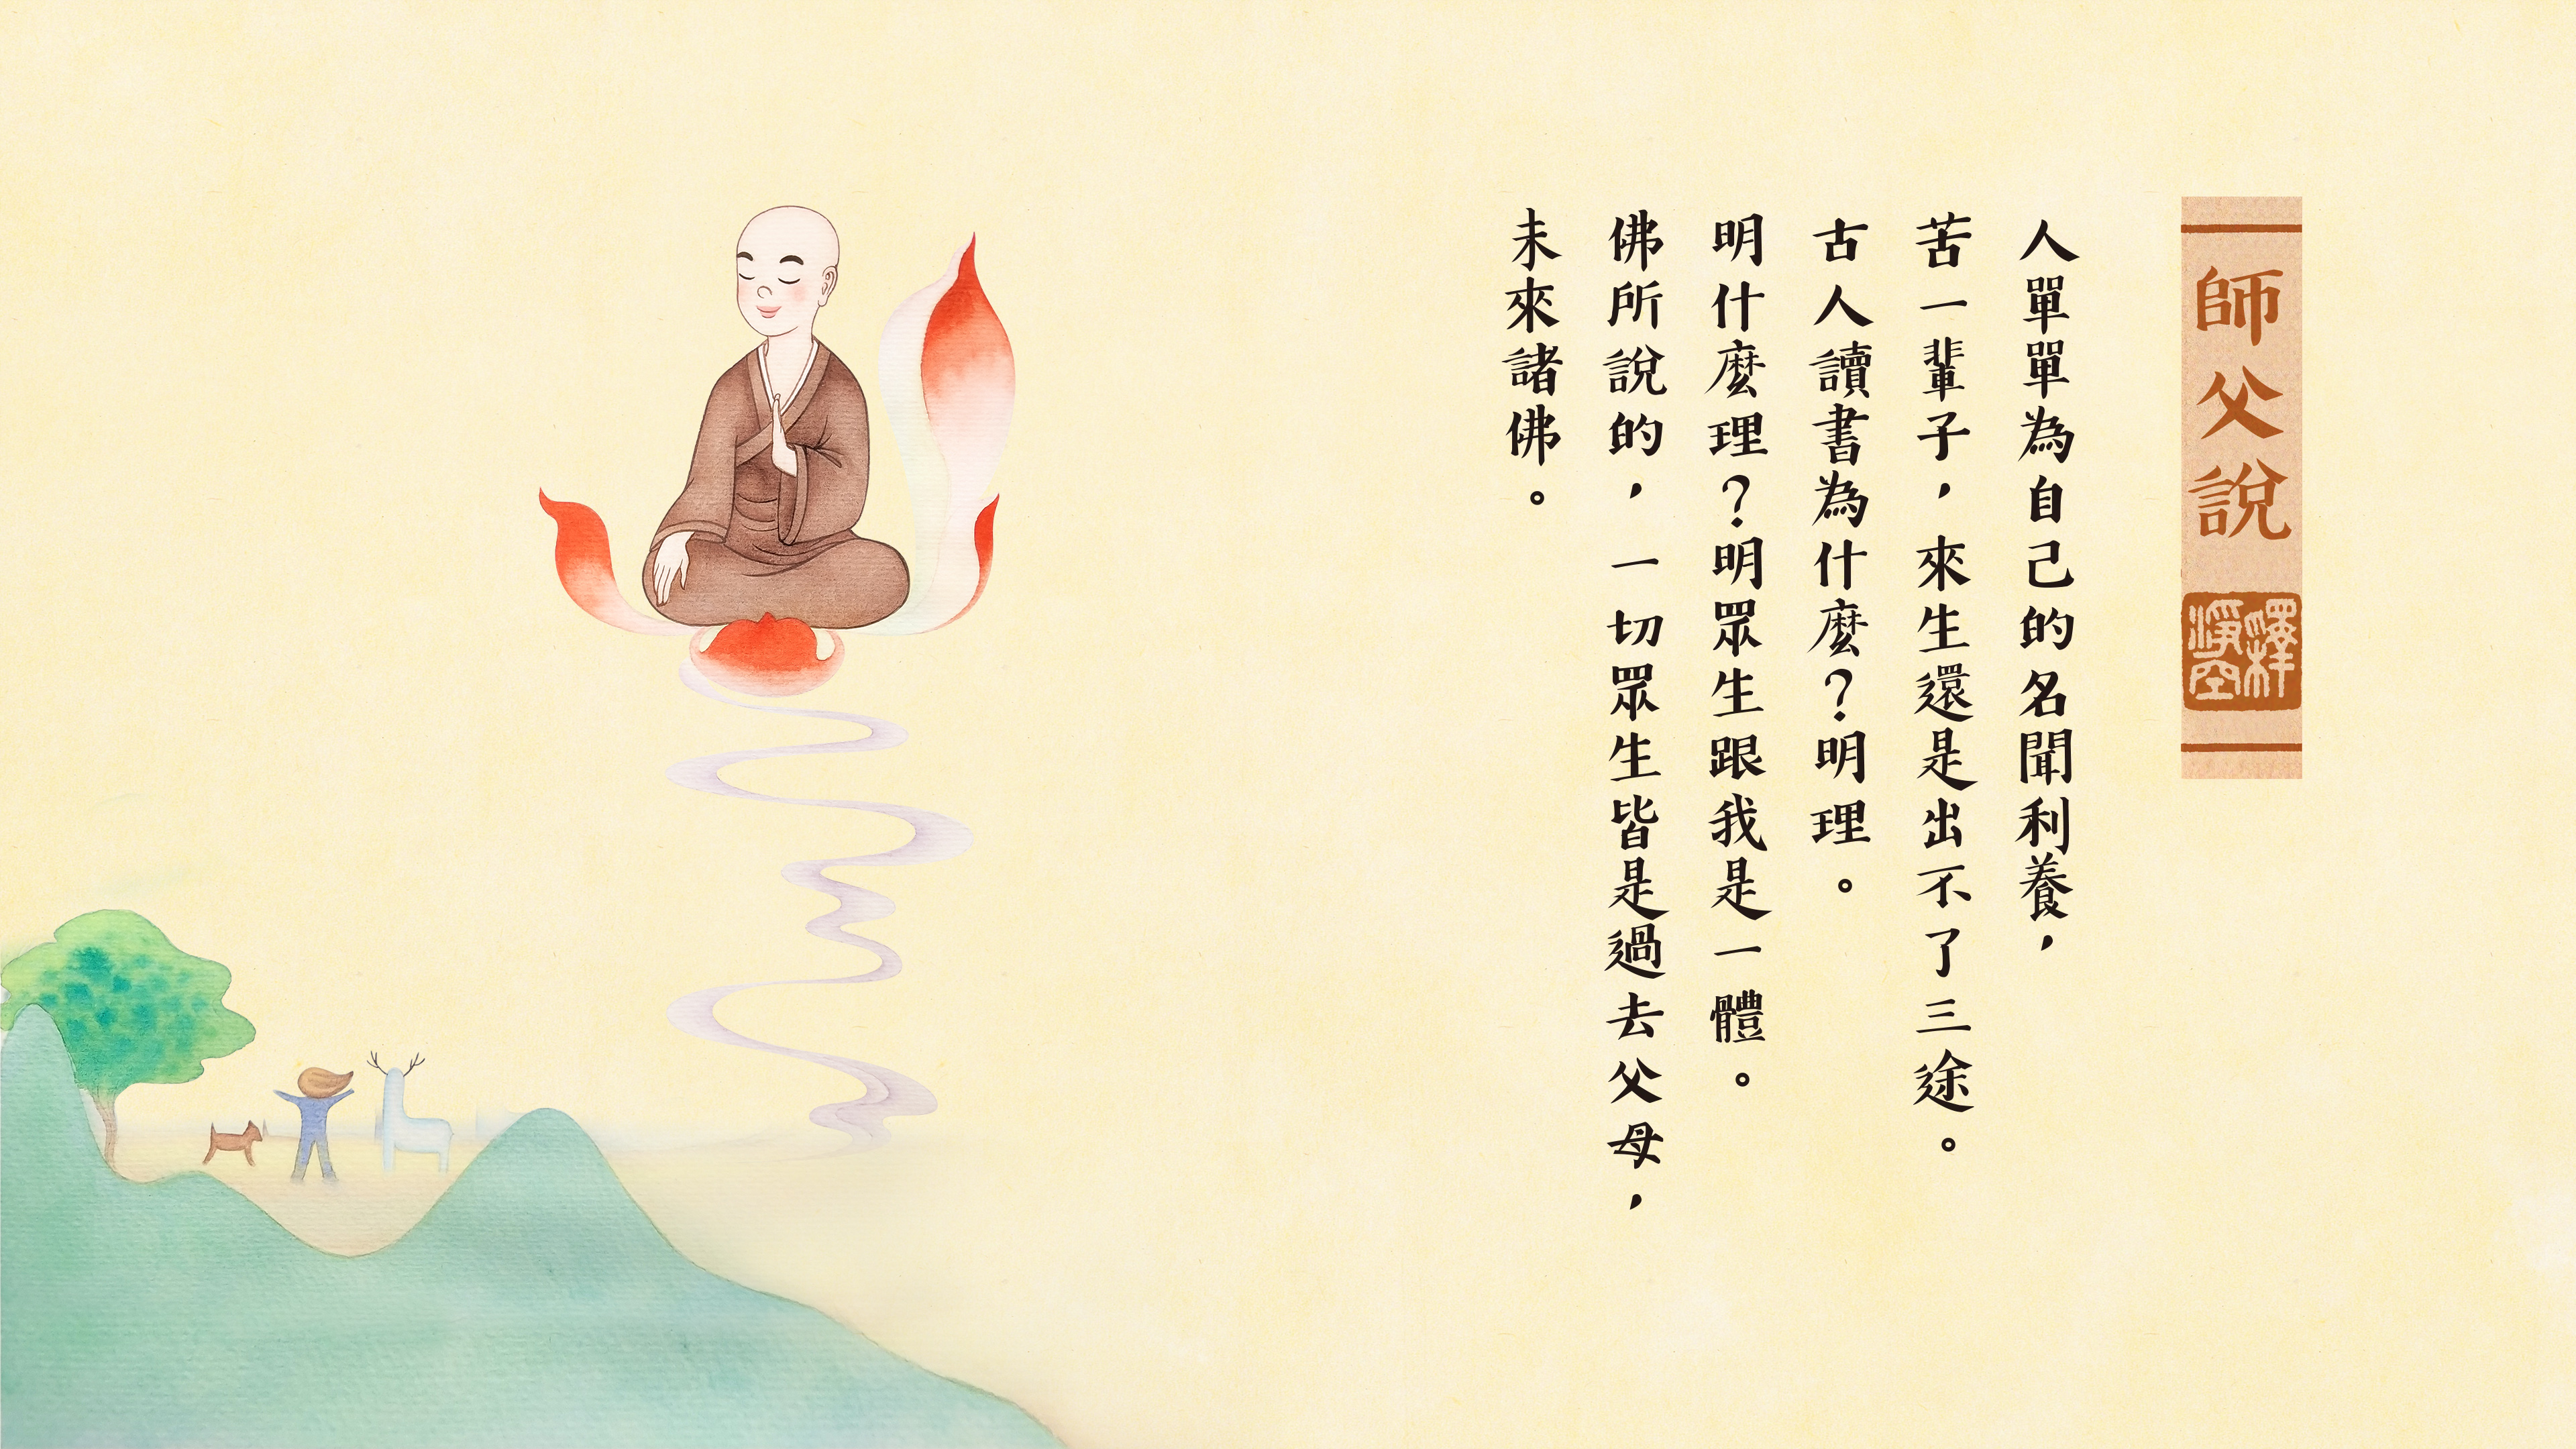 師父說
釋淨空
人單單為自己的名聞利養，
苦一輩子，來生還是出不了三途。
古人讀書為什麼？明理。
明什麼理？明眾生跟我是一體。
佛所說的，一切眾生皆是過去父母，
未來諸佛。